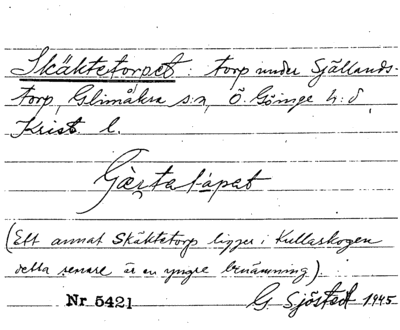 Skäktetorpet : torp under Själlands-
torp, Glimåkra s:n, Ö. Göinge h:d,
Krist. l.
(Ett annat Skäktetorp ligger i Kullaskogen
detta senare är en yngre benämning).
Nr 5421 G. Sjöstedt 1945